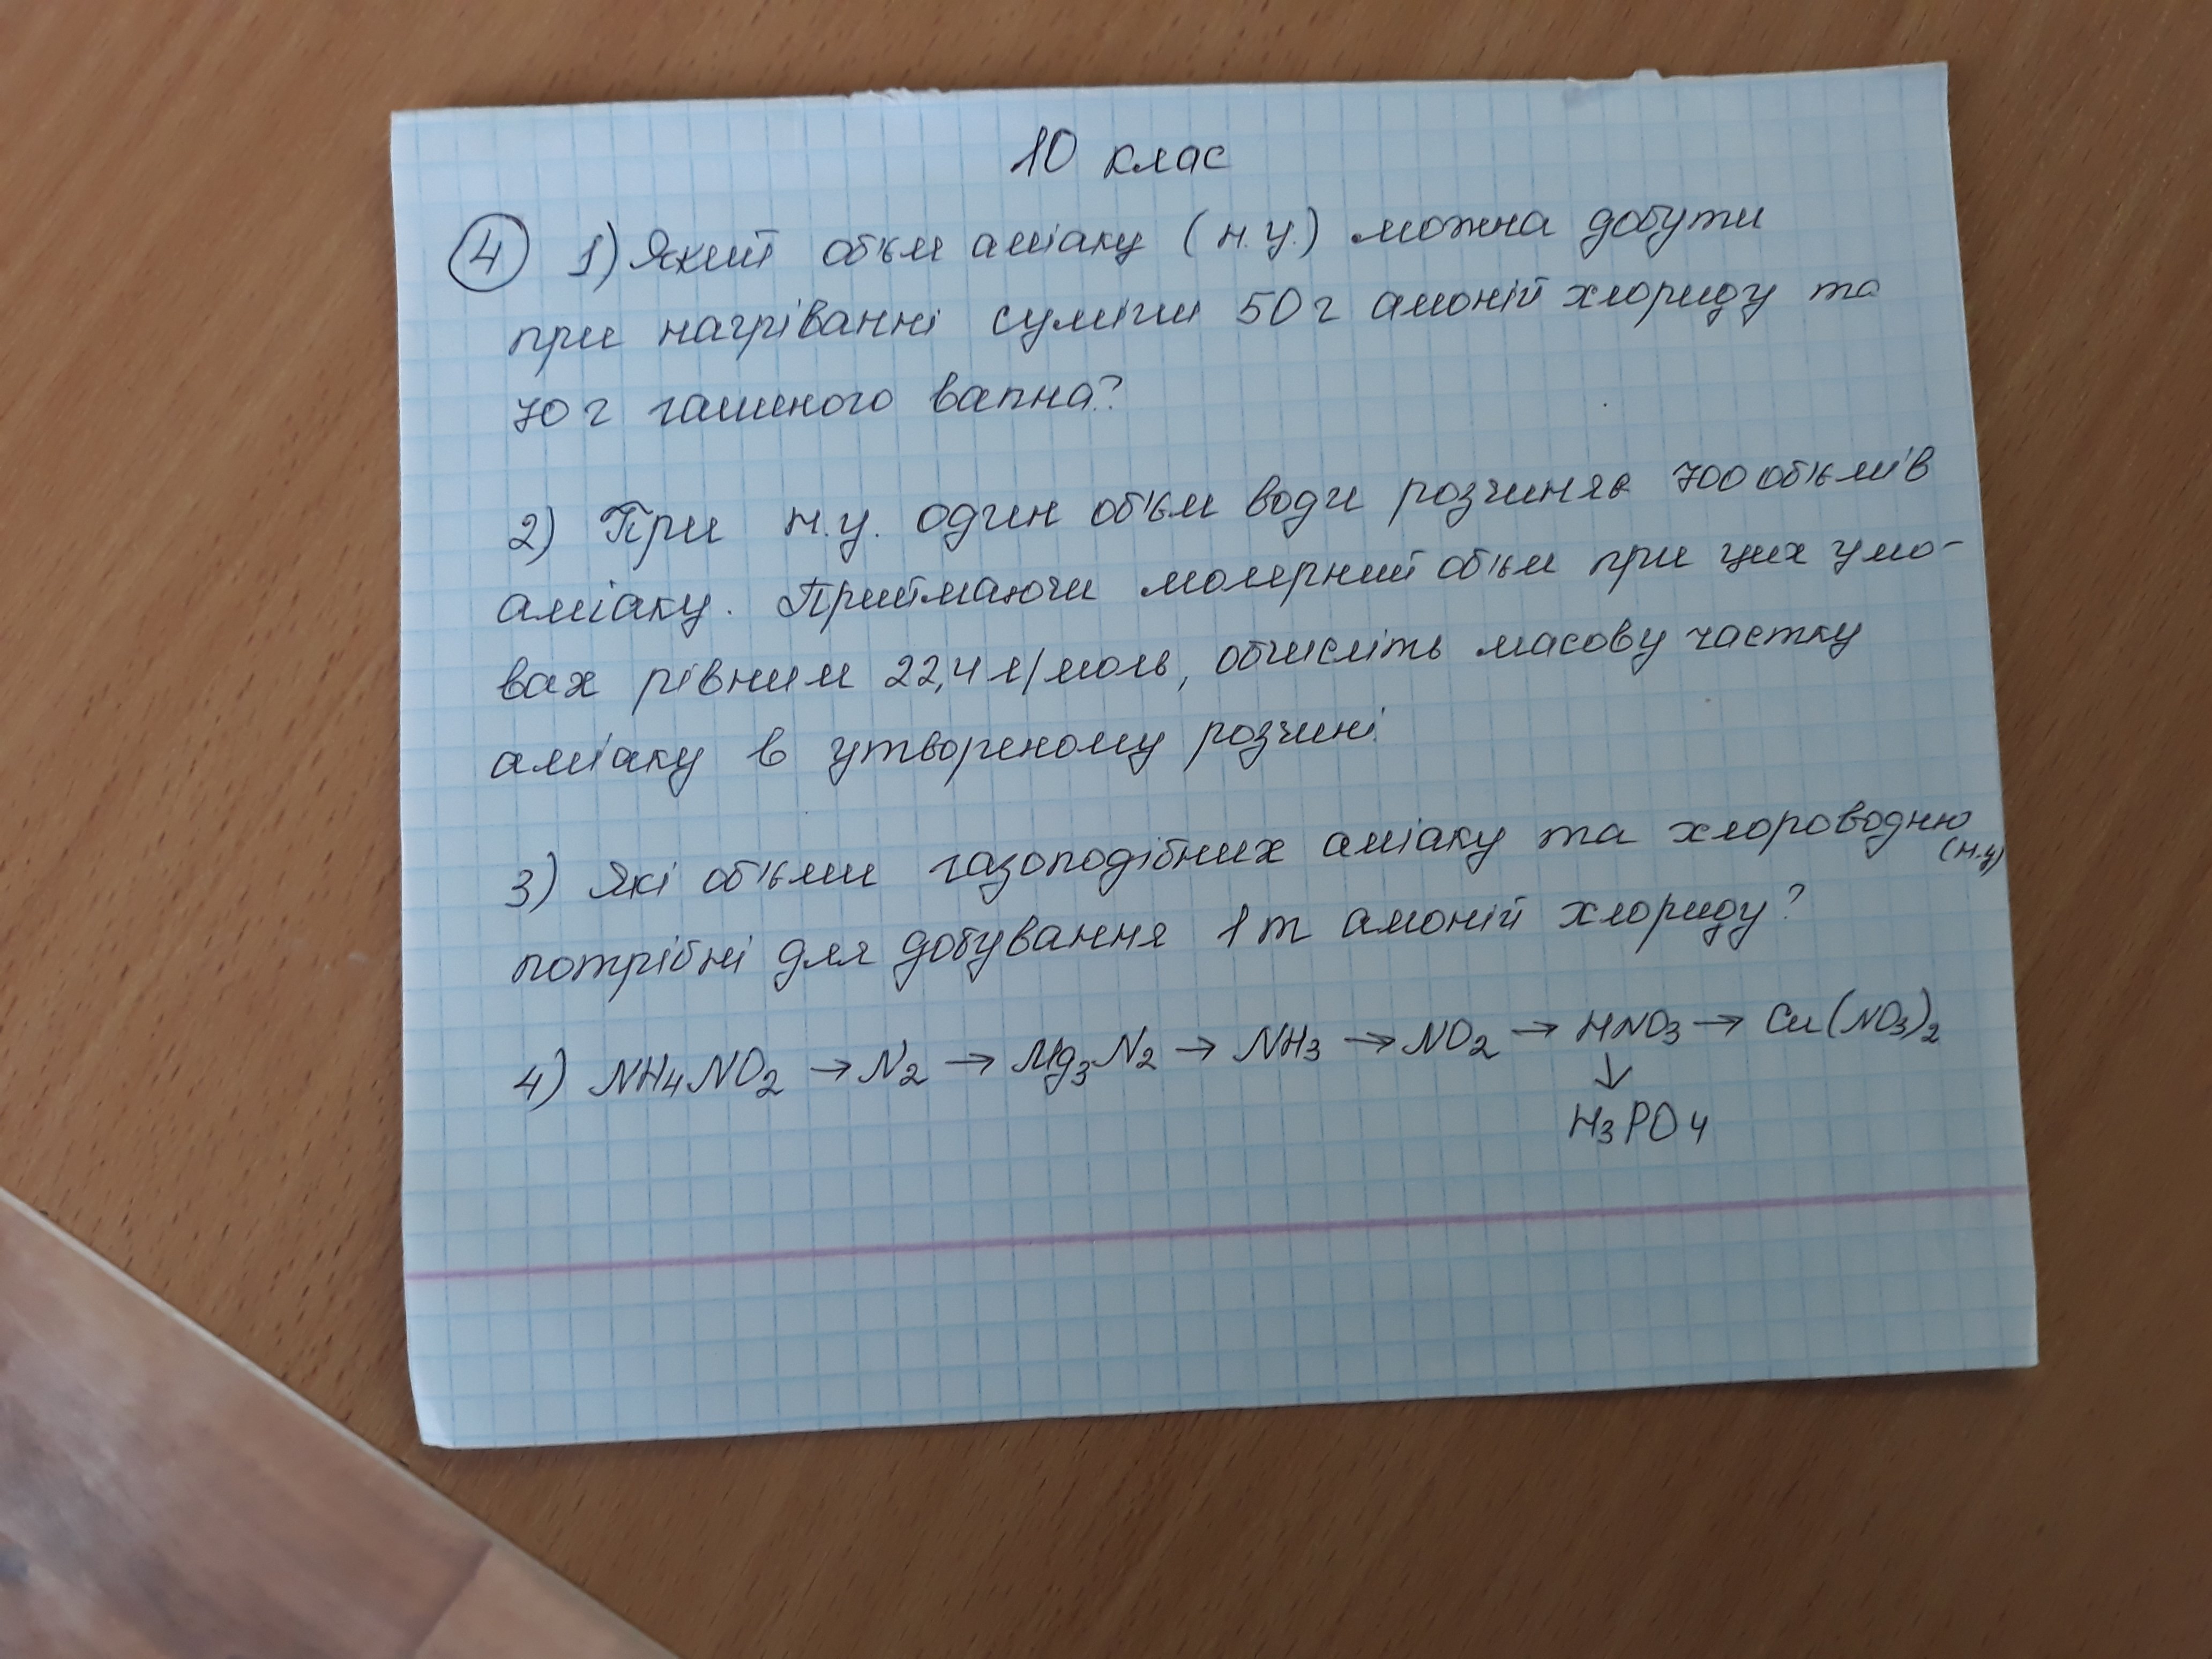 10 клас
4 1) Який об'єм аміаку (н.у.) можна добути
при нагріванні суміші 50 г амоній хлориду та
70 г гашеного вапна?
2) При н.у. один об'єм води розчиняє 700 об'ємів
аміаку. Приймаючи молярний об'єм при цих умо-
вах рівним 22,4 л/моль, обчисліть масову частку
аміаку в утвореному розчині.
3) Які об'єми газоподібних аміаку та хлороводню
(н.у)
потрібні для добування 1 т амоній хлориду?
4) NH4NO2 → N2 → Mg3N2 → NH3 → NO2 → HNO3 → Cu(NO3)2
↓
H3PO4